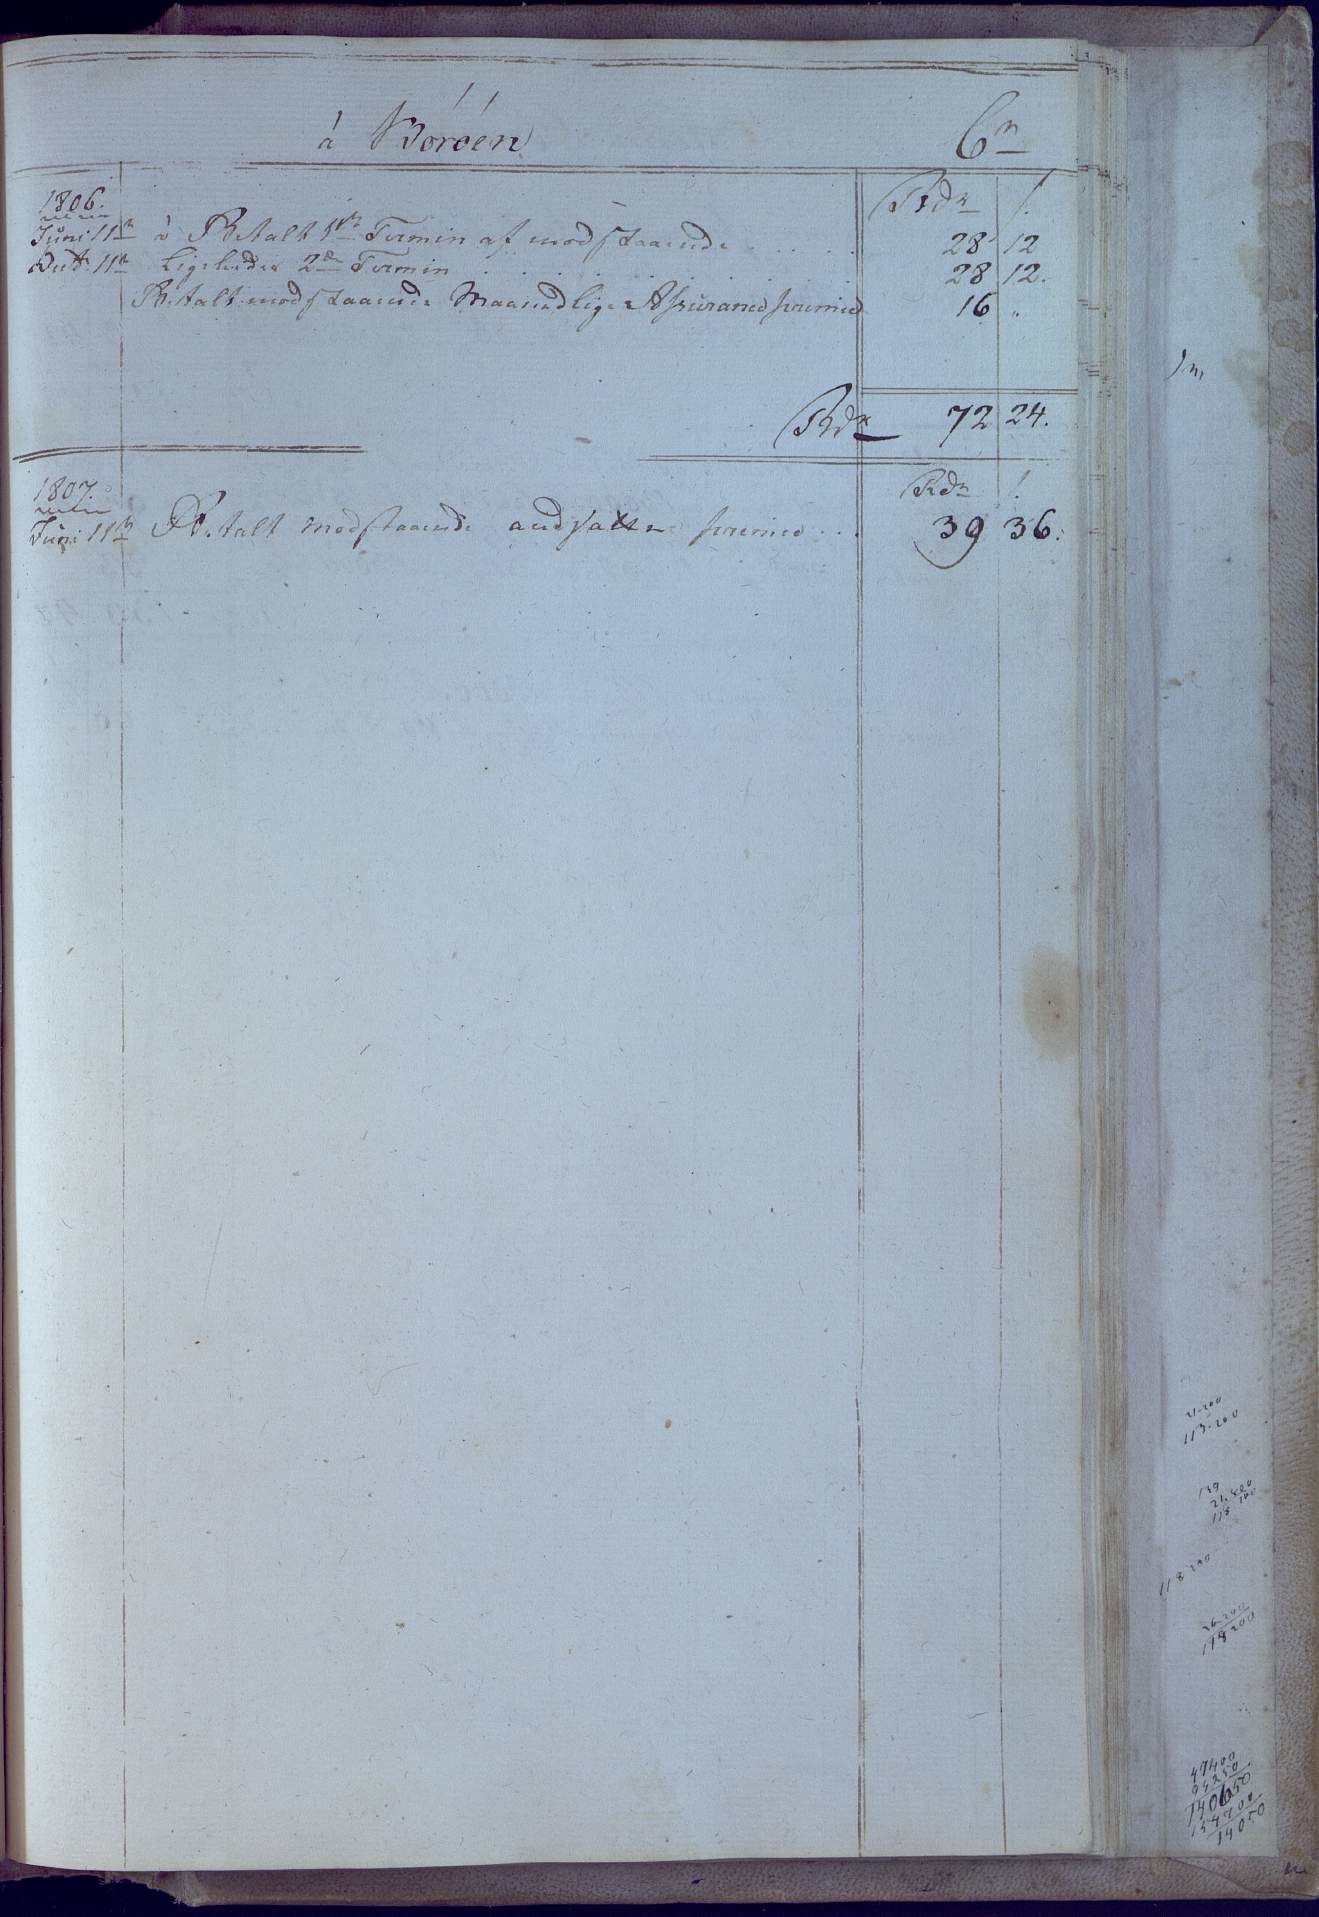 á Boröen Cr
1806. Rdr ſ.
Juni 11te à Betalt 1ste Termin af modstaaende . . 28 12
Octb. 11te Ligeledes 2den Termin . . . . . . 28 12.
Betalt modstaaende Maanedlige Assurance præmie 16 "
Rdr 72 24.
1807. Rdr ſ.
Juni 11te Betalt modstaaende ansatte præmie . . . 39 36.
113.200
118 200
118 200
118200
47400
140650
14050